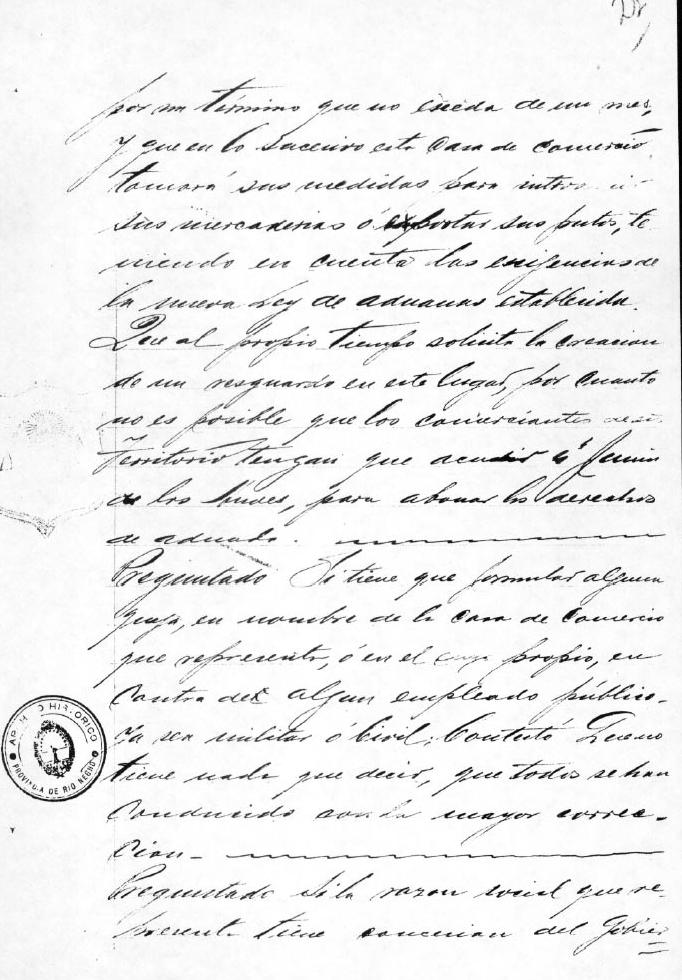 por un término que no exeda de un mes,
y que en lo sucesivo esta Casa de comercio
tomará sus medidas para
sus mercaderias ó exportar sus frutos, te
niendo en cuenta las exijencias de
la nueva Ley de aduanas establecida.
Que al propio tiempo solicita la creacion
de un resguardo en este lugar, por cuanto
no es posible que los comerciantes
Territorio tengan que acudir á Junin
de los Andes, para abonar los derechos
de aduana.
Preguntado Si tiene que formular alguna
queja, en nombre de la casa de Comercio
que representa, ó en el propio, en
Contra del algun empleado público.
Ya sea militar ó Civil; Contestó Que no
tiene nada que decir, que todos se han
Conducido con la mayor correc-
cion-
Preguntado Si la razon social que re-
presenta tiene concecion del Gobier
ARCHIVO HISTORICO
PROVINCIA DE RIO NEGRO